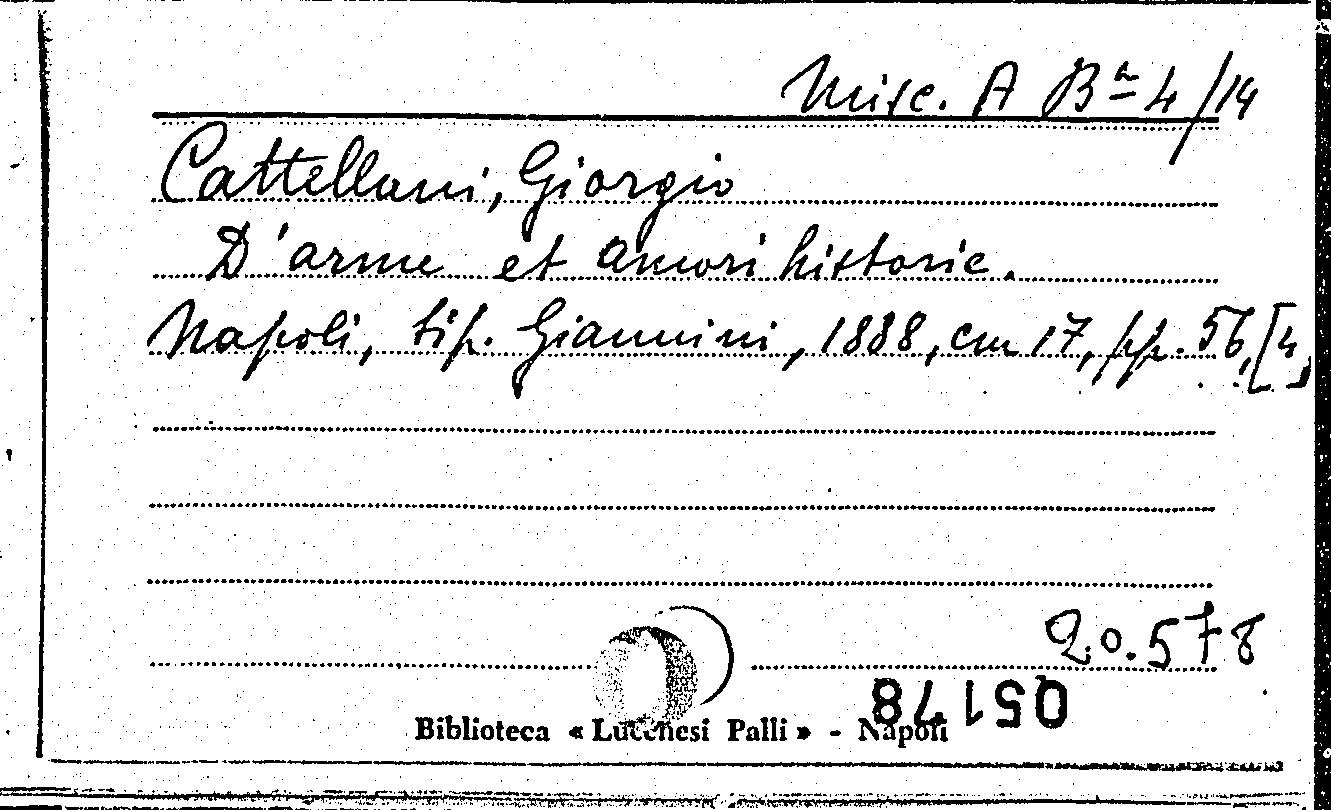 Misc. A Bª 4/14
Cattellani, Giorgio
D'arme et amori historie.
Napoli, tip. Giannini, 1888, cm 17, pp. 56, [4,
20.578
05178
Biblioteca « Lucchesi Palli » - Napoli